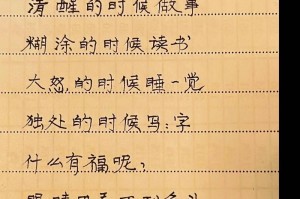 清醒的时候做事
糊涂的时候读书
大怒的时候睡一觉
独处的时候写字
什么有福呢？